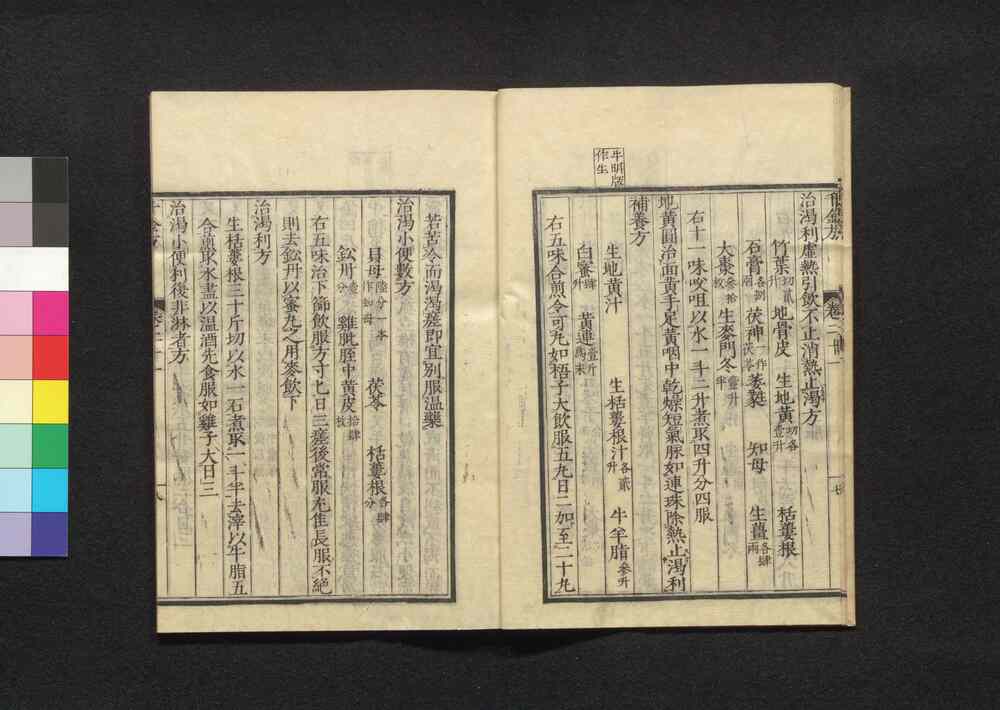 千金方
卷二十一
治渴利虛熱引飲不止消熱止渴方
竹葉切貳升 地骨皮 生地黃切各壹升 栝蔞根
石膏各捌兩 茯神一作茯苓 萎蕤 知母 生薑各肆兩
大棗叁拾枚 生麥門冬壹升半
右十一味㕮咀以水一斗二升煮取四升分四服
地黃圓治面黃手足黃咽中乾燥短氣脉如連珠除熱止渴利
補養方
生地黃汁 生栝蔞根汁各貳升 牛羊脂叁升
白蜜肆升 黃連壹斤為末
右五味合煎令可丸如梧子大飲服五丸日二加至二十丸
牛明版作生
若苦冷而渴渴瘥即宜別服溫藥
治渴小便數方
貝母陸分一本作知母 茯苓 栝蔞根各肆分
鈆丹壹分 雞肶胵中黃皮拾肆枚
右五味治下篩飲服方寸匕日三瘥後常服尤佳長服不絕
則去鈆丹以蜜丸之用麥飲下
治渴利方
生栝蔞根三十斤切以水一石煮取一斗半去滓以牛脂五
合煎取水盡以溫酒先食服如雞子大日三
治渴小便利復非淋者方